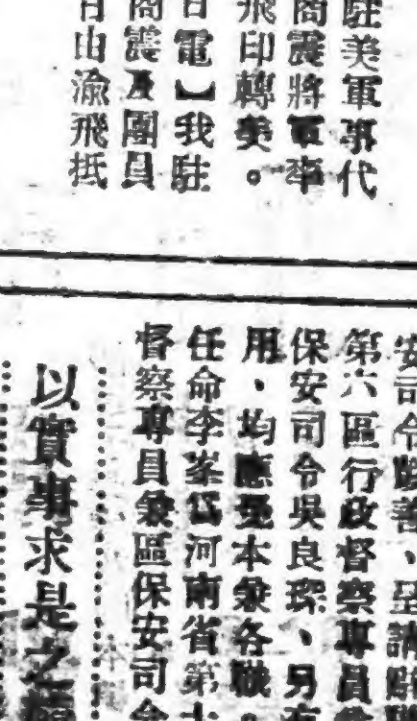 駐美軍事代
商震將軍率
飛印轉美。
日電】我駐
商震及團員
日由渝飛抵
安司令
、呈請
第六區行政督察專員
保安司令吳良琛、另有
用、均應免本兼各職。
任命李峯爲河南省第
督察專員兼區保安司令
以實事求是之